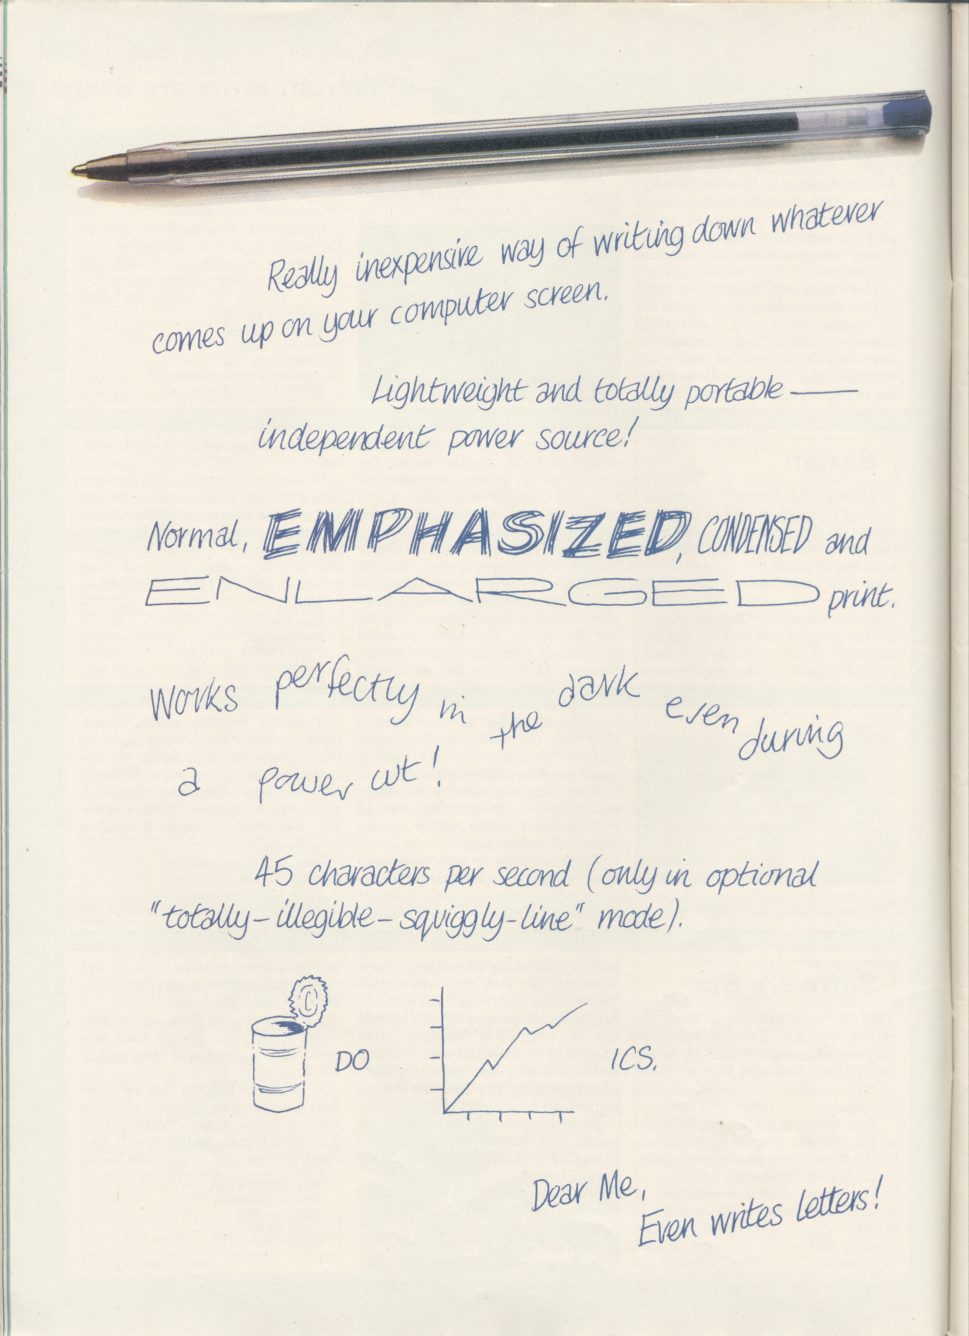 Really inexpensive way of writing down whatever
comes up on your computer screen.
Lightweight and totally portable —
independent power source!
Normal, EMPHASIZED, CONDENSED and
ENLARGED print.
Works perfectly in the dark even during
a power cut!
45 characters per second (only in optional
"totally-illegible-squiggly-line" mode).
DO ICS.
Dear Me,
Even writes letters!